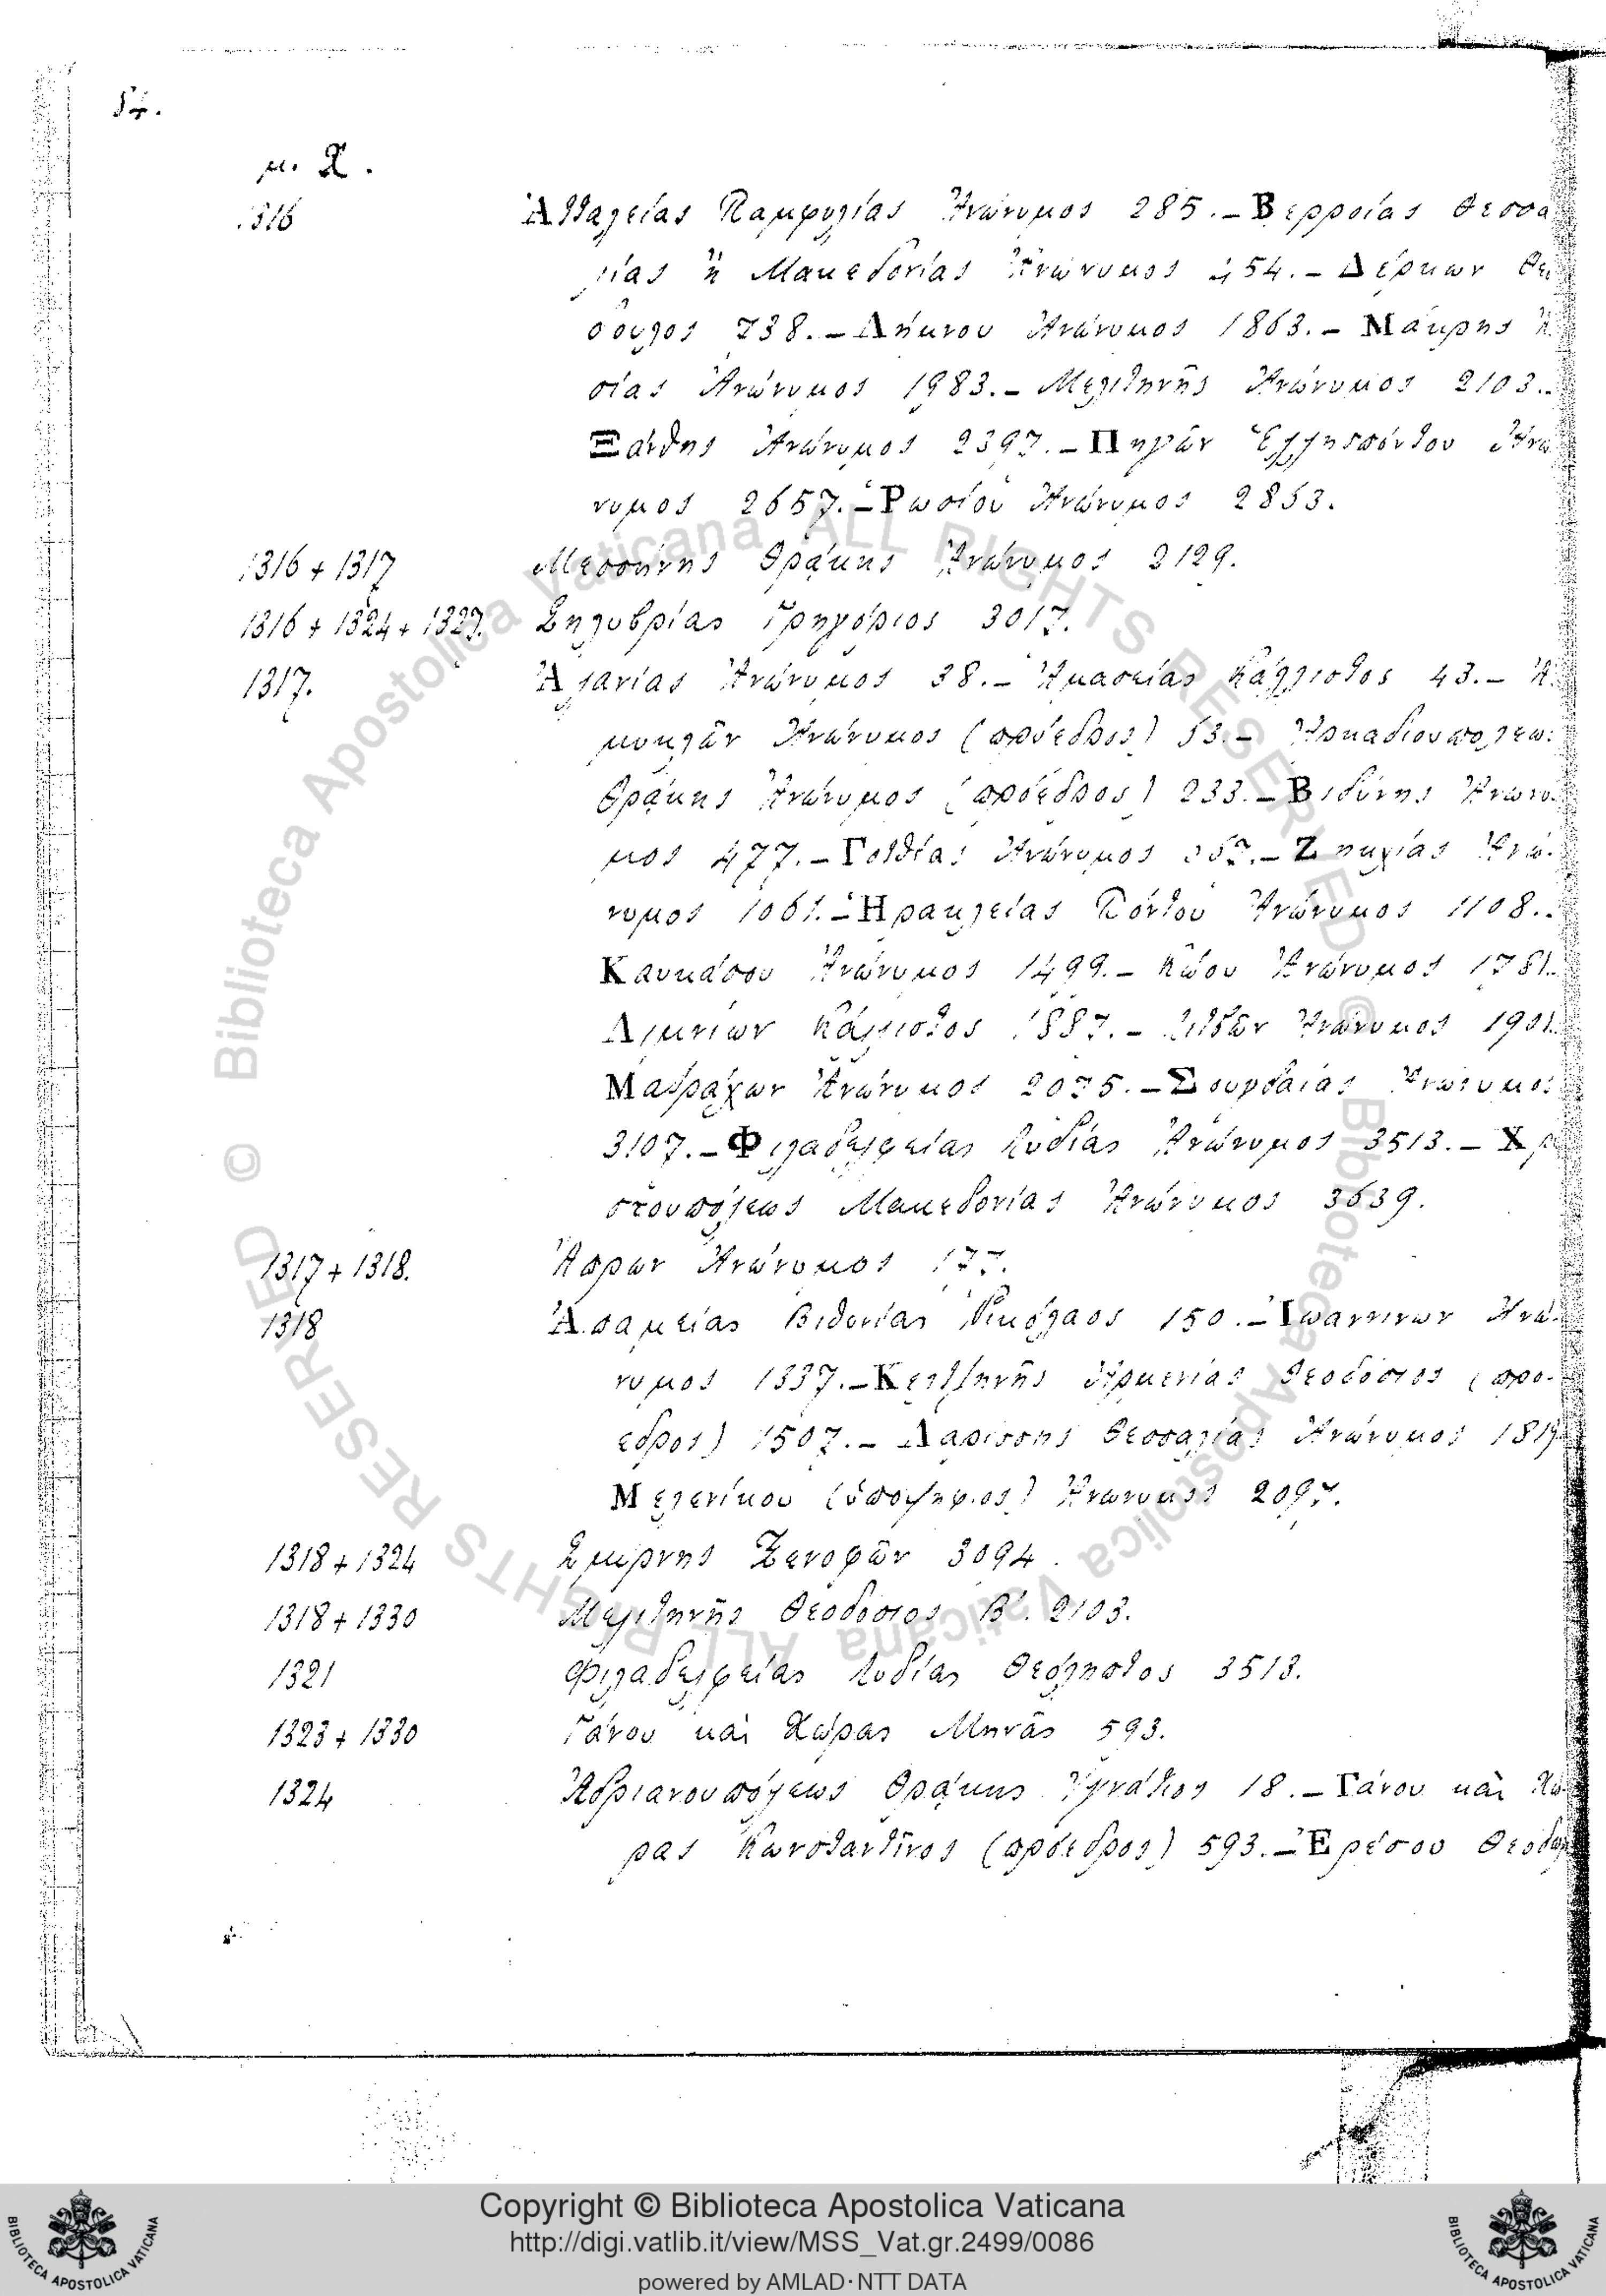 54.
μ. Χ.
1316 Ἀτταλείας Παμφυλίας Ἀνώνυμος 285. – Βερροίας Θεσσα
λίας ἢ Μακεδονίας Ἀνώνυμος 454. – Δέρκων Θε
όδουλος 738. – Λήμνου Ἀνώνυμος 1863. – Μάκρης
Ἀνώνυμος 1983. – Μελιτηνῆς Ἀνώνυμος 2103. –
Ξάνθης Ἀνώνυμος 2397. – Πηγῶν Ἑλλησπόντου Ἀνώ
νυμος 2657. – Ῥωσίου Ἀνώνυμος 2853.
1316 + 1317 Μεσσήνης Θρᾴκης Ἀνώνυμος 2129.
1316 + 1324 + 1327. Σηλυβρίας Γρηγόριος 3017.
1317. Ἀλανίας Ἀνώνυμος 38. – Ἀμασείας Κάλλιστος 43. – Ἀ
μυκλῶν Ἀνώνυμος (πρόεδρος) 53. – Ἀρκαδιουπόλεως
Θρᾴκης Ἀνώνυμος (πρόεδρος) 233. – Βιδύνης Ἀνώνυ
μος 477. – Γοτθίας Ἀνώνυμος – Ζηκχίας Ἀνώ
νυμος 1061. – Ἡρακλείας Πόντου Ἀνώνυμος 1108. –
Καυκάσου Ἀνώνυμος 1499. – Κώου Ἀνώνυμος 1781.
Λιμνίων Κάλλιστος 1887. – Ἀνώνυμος 1901.
Μαδράχων Ἀνώνυμος 2075. – Σουγδαίας Ἀνώνυμος
3107. – Φιλαδελφείας Λυδίας Ἀνώνυμος 3513. – Χρι
στουπόλεως Μακεδονίας Ἀνώνυμος 3639.
1317 + 1318. Ἄπρων Ἀνώνυμος 177.
1318 Ἀπαμείας Βιθυνίας Νικόλαος 150. – Ἰωαννίνων Ἀνώ
νυμος 1337. – Κελτζηνῆς Ἀρμενίας Θεοδόσιος (πρό
εδρος) 1507. – Λαρίσσης Θεσσαλίας Ἀνώνυμος 1819
Μελενίκου (ὑποψήφιος) Ἀνώνυμος 2097.
1318 + 1324 Σμύρνης Ξενοφῶν 3094.
1318 + 1330 Μελιτηνῆς Θεοδόσιος Β'. 2103.
1321 Φιλαδελφείας Λυδίας Θεόληπτος 3513.
1323 + 1330 Γάνου καὶ Χώρας Μηνᾶς 593.
1324 Ἀδριανουπόλεως Θρᾴκης Ἰγνάτιος 18. – Γάνου καὶ Χώ
ρας Κωνσταντῖνος (πρόεδρος) 593. – Ἐρέσου
© Biblioteca Apostolica Vaticana ALL RIGHTS RESERVED © Biblioteca Apostolica Vaticana ALL RIGHTS RESERVED
Copyright © Biblioteca Apostolica Vaticana
http://digi.vatlib.it/view/MSS_Vat.gr.2499/0086
powered by AMLAD·NTT DATA
BIBLIOTECA APOSTOLICA VATICANA
BIBLIOTECA APOSTOLICA VATICANA